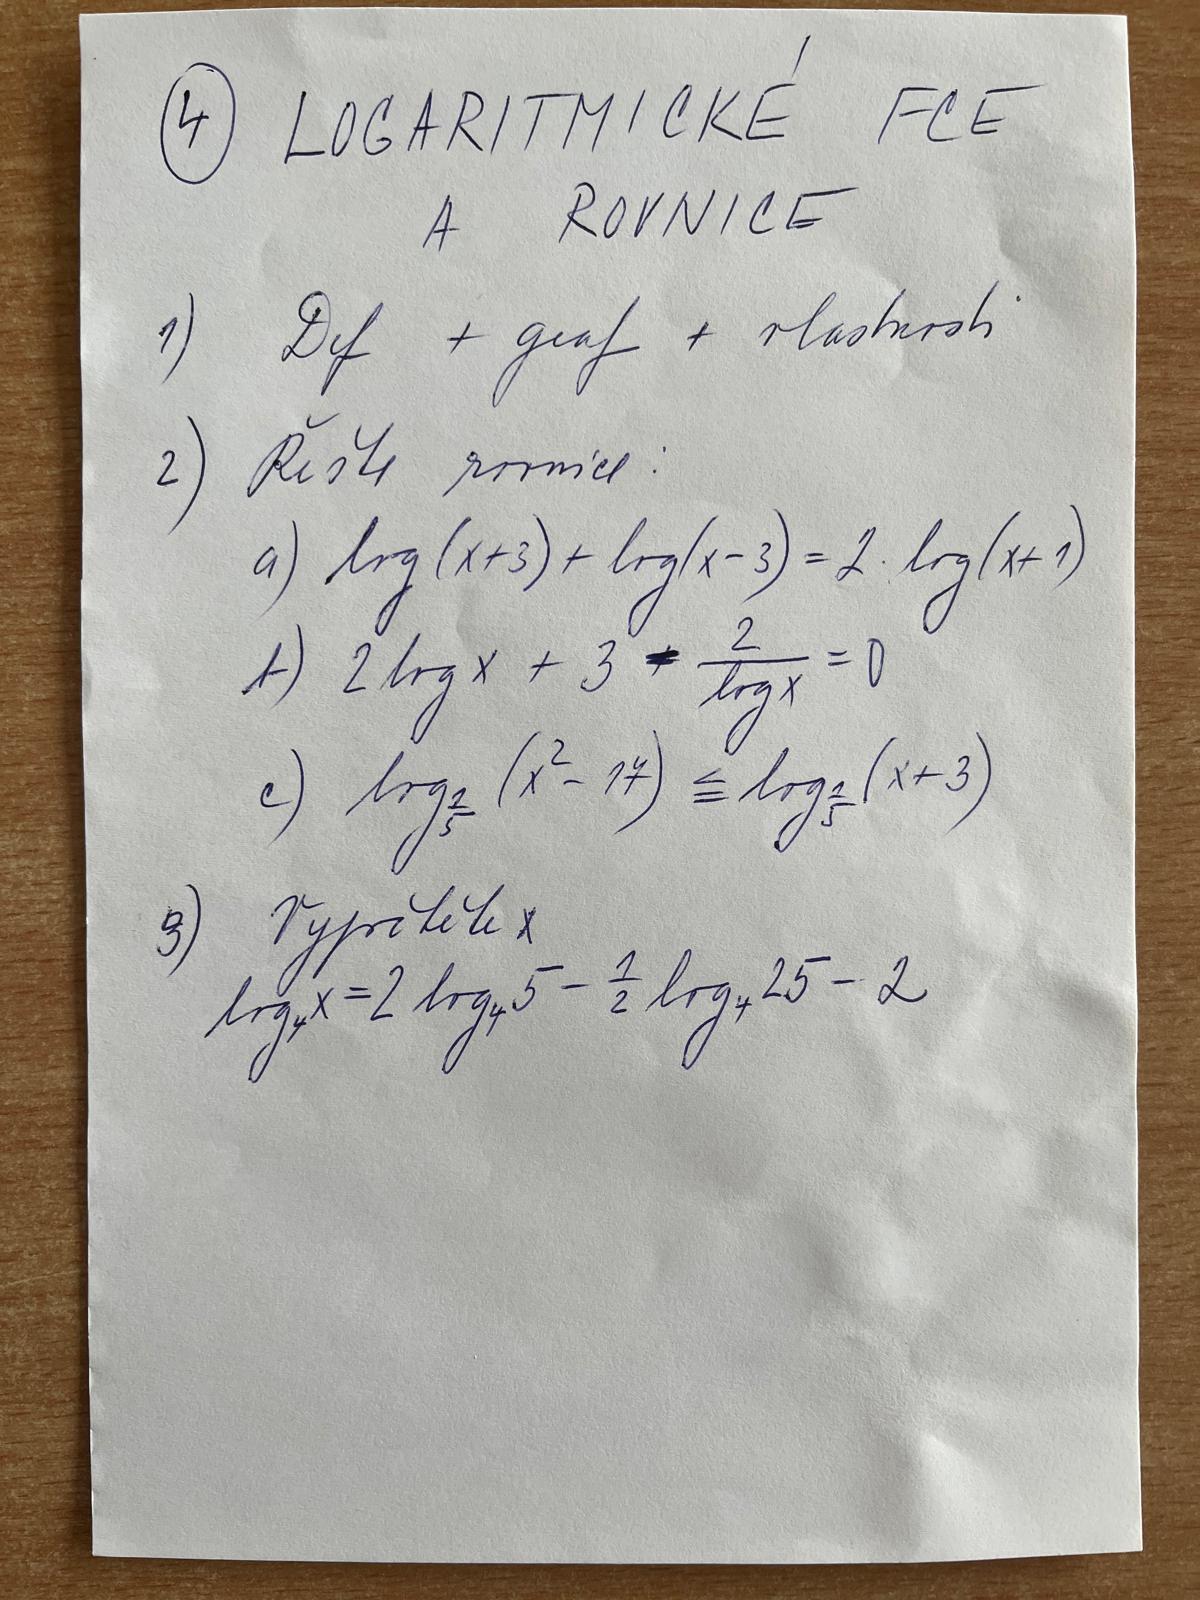 ④ LOGARITMICKÉ FCE
A ROVNICE
1) Def + graf + vlastnosti
2) Řešte rovnice:
a) log(x+3) + log(x-3) = 2 · log(x+1)
b) 2 log x + 3 - 2/log x = 0
c) log_{2/5} (x² - 17) ≦ log_{2/5} (x+3)
3) Vypočtěte x
log₄x = 2 log₄5 - 1/2 log₄25 - 2